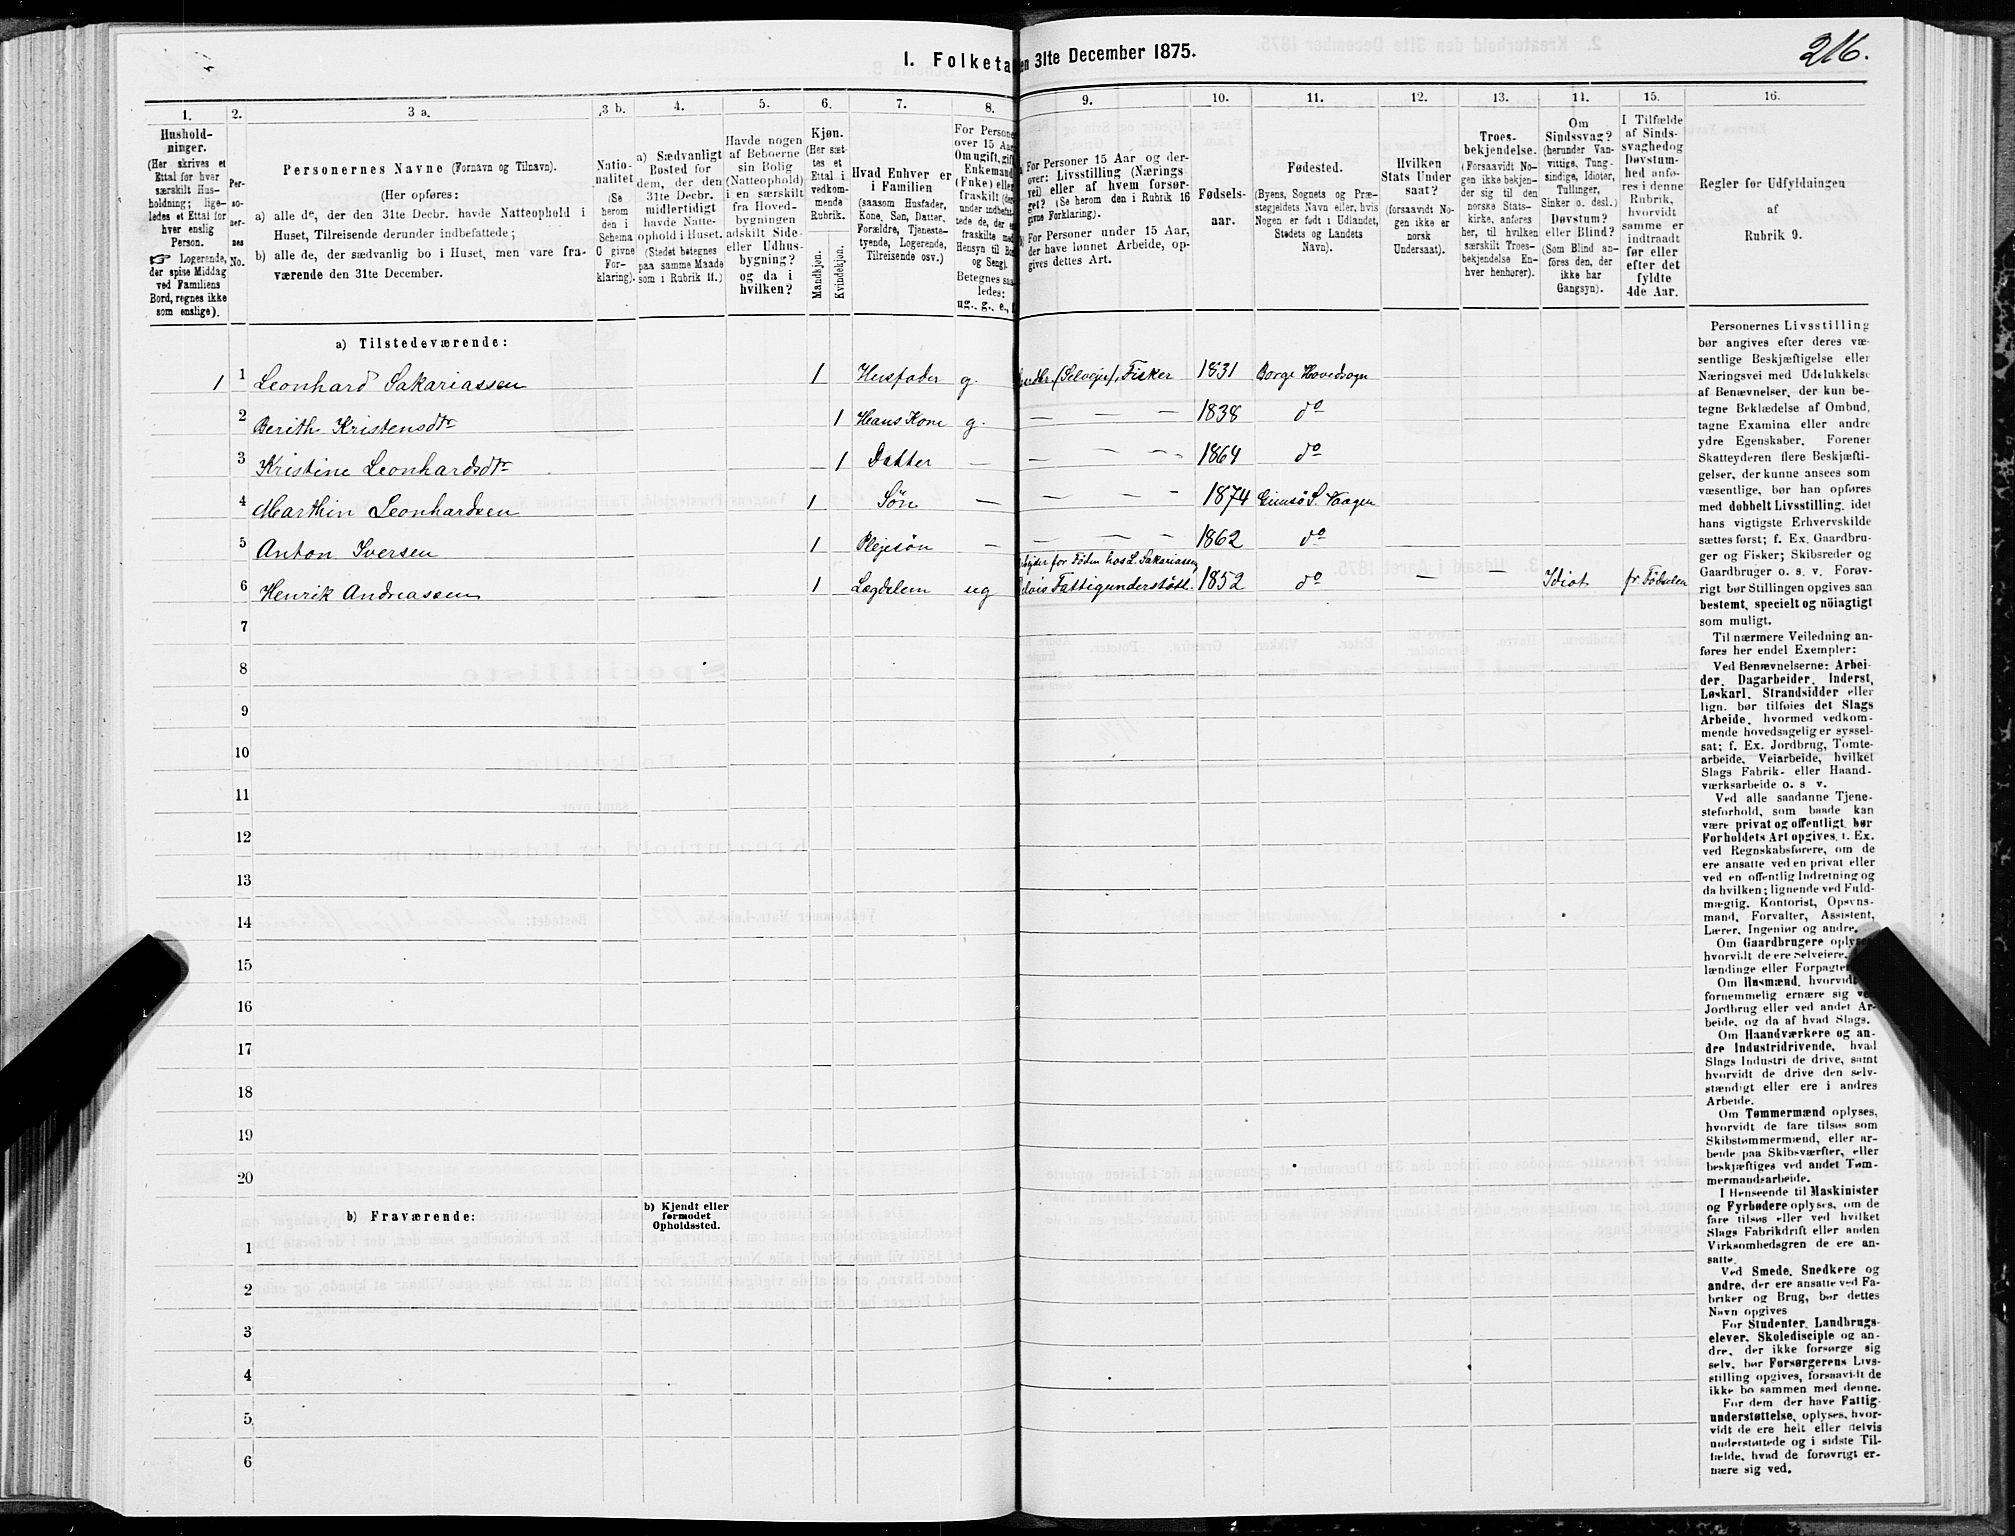 216.
1. Folketa
en 31te December 1875.
1.
2.
3 a.
3 b.
4.
5.
6.
7.
8.
9.
10.
11.
12.
13.
14.
15.
16.
Hushold-
ninger.
(Her skrives et
Ettal for hver
særskilt Hus-
holdning; lige-
ledes et Ettal for
hver enslig
Person.
Logerende,
der spise Middag
ved Familiens
Bord, regnes ikke
som enslige).
Per-
so-
ner-
nes
No.
Personernes Navne (Fornavn og Tilnavn).
(Her opføres:
a) alle de, der den 31te Decbr. havde Natteophold i
Huset, Tilreisende derunder indbefattede;
b) alle de, der sædvanlig bo i Huset, men vare fra-
værende den 31te December.
Natio-
nalitet
(Se
herom
den i
Schema
C givne
For-
klaring).
a) Sædvanligt
Bosted for
dem, der den
31te Decbr.
midlertidigt
havde Natte-
ophold i Huset.
(Stedet betegnes
paa samme Maade
som i Rubrik 11.)
Havde nogen
af Beboerne
sin Bolig
(Natteophold)
i en særskilt
fra Hoved-
bygningen
adskilt Side-
eller Udhus-
bygning?
og da i
hvilken?
Kjøn.
(Her sæt-
tes et
Ettal i
vedkom-
mende
Rubrik.
Mandkjøn.
Kvindekjøn.
Hvad Enhver er
i Familien
(saasom Husfader,
Kone, Søn, Datter,
Forældre, Tjeneste-
tyende, Logerende,
Tilreisende osv.)
For Persone
over 15 Aar
Om ugift, gift
Enkemand
(Enke) eller
fraskilt (der
under indbefat-
tede de, der er
fraskilte med
Hensyn til Bo
og Seng).
Betegnes saa
ledes:
ug., g., e., f
For Personer 15 Aar og der-
over: Livsstilling (Nærings
vei) eller af hvem forsør-
get? (Se herom den i Rubrik 16
givne Forklaring).
For Personer under 15 Aar,
der have lønnet Arbeide, op-
gives dettes Art.
Fødsels-
aar.
Fødested.
(Byens, Sognets og Præ-
stegjeldets Navn eller, hvis
Nogen er født i Udlandet,
Stedets og Landets
Navn).
Hvilken
Stats Under
saat?
(forsaavidt No-
gen ikke er
norsk
Undersaat).
Troes-
bekjendelse.
(Forsaavidt No-
gen ikke bekjen-
der sig til den
norske Stats-
kirke, anføres
her, til hvilken
særskilt Troes-
bekjendelse En-
hver henhører).
Om
Sindssvag?
(herunder Van-
vittige, Tung-
sindige, Idioter,
Tullinger,
Sinker o. desl.)
Døvstum?
eller Blind?
(Som Blind an-
føres den, der
ikke har
Gangsyn).
I Tilfælde
af Sinds-
svaghed og
Døvstum-
hed anfø-
res i denne
Rubrik,
hvorvidt
samme er
indtraadt
før eller
efter det
fyldte
4de Aar.
Regler for Udfyldningen
af
Rubrik 9.
a) Tilstedeværende:
1 1 Leonhard Sakariassen 1 Husfader g. (Selveier), Fisker 1831 Borge Hovedsogn
2 Berith Kristensdtr 1 Hans Kone g. — — — 1838 do
3 Kristine Leonhardsdtr 1 Datter — — — — 1864 do
4 Marthin Leonhardsen 1 Søn — — — — 1874 Gimsø S. Vaagen
5 Anton Iversen 1 Plejesøn — — — — 1862 do
for Føden hos L. Sakariassen
6 Henrik Andreassen 1 Lægdslem ug Fattigunderstøtt. 1852 do — — Idiot fr Fødselen
7
8
9
10
11
12
13
14
15
16
17
18
19
20
b) Fraværende:
b) Kjendt eller
formodet
Opholdssted.
1
2
3
4
5
6
Personernes Livsstilling
bør angives efter deres væ-
sentlige Beskjæftigelse eller
Næringsvei med Udelukkelse
af Benævnelser, der kun be-
tegne Beklædelse af Ombud,
tagne Examina eller andre
ydre Egenskaber. Forener
Skatteyderen flere Beskjæfti-
gelser, der kunne ansees som
væsentlige, bør han opføres
med dobbelt Livsstilling, idet
hans vigtigste Erhvervskilde
sættes først; f. Ex. Gaardbru-
ger og Fisker; Skibsreder og
Gaardbruger o. s. v. Forøv-
rigt bør Stillingen opgives saa
bestemt, specielt og nöiagtigt
som muligt.
Til nærmere Veiledning an-
føres her endel Exempler:
Ved Benævnelserne: Arbei-
der, Dagarbeider, Inderst,
Løskarl, Strandsidder eller
lign. bør tilføies det Slags
Arbeide, hvormed vedkom-
mende hovedsagelig er syssel-
sat; f. Ex. Jordbrug, Tomte-
arbeide, Veiarbeide, hvilket
Slags Fabrik- eller Haand-
værksarbeide o. s. v.
Ved alle saadanne Tjene-
steforhold, som baade kan
være privat og offentligt, bør
Forholdets Art opgives, f. Ex.
ved Regnskabsførere, om de
ere ansatte ved en privat eller
ved en offentlig Indretning og
da hvilken; lignende ved Fuld-
mægtig, Kontorist, Opsyns-
mand, Forvalter, Assistent,
Lærer, Ingeniør og andre.
Om Gaardbrugere oplyses
hvorvidt de ere Selveiere,
lændinge eller Forpagtere
Om Husmænd, hvorvidt
fornemmelig ernære sig ve
Jordbrug eller ved andet Ar-
beide, og da af hvad Slags.
Om Haandværkere og an-
dre Industridrivende, hvad
Slags Industri de drive, samt
hvorvidt de drive den selv-
stændigt eller ere i andres
Arbeide.
Om Tømmermænd oplyses,
hvorvidt de fare tilsøs som
Skibstømmermænd, eller ar-
beide paa Skibsværfter, eller
beskjæftiges ved andet Tøm-
mermandsarbeide.
I Henseende til Maskinister
og Fyrbødere oplyses, om de
fare tilsøs eller ved hvilket
Slags Fabrikdrift eller anden
Virksomhedsgren de ere an-
satte.
Ved Smede, Snedkere og
andre, der ere ansatte ved Fa-
briker og Brug, bør dettes
Navn opgives
For Studenter, Landbrugs-
elever, Skoledisciple og an-
dre, der ikke forsørge sig
selv, bør Forsørgerens Livs-
stilling opgives, forsaavidt de
ikke bo sammen med denne.
For dem, der have Fattig-
understøttelse, oplyses, hvor-
vidt de ere helt eller delvis
understøttede og i sidste Til-
fælde, hvad de forøvrigt er-
nære sig ved.